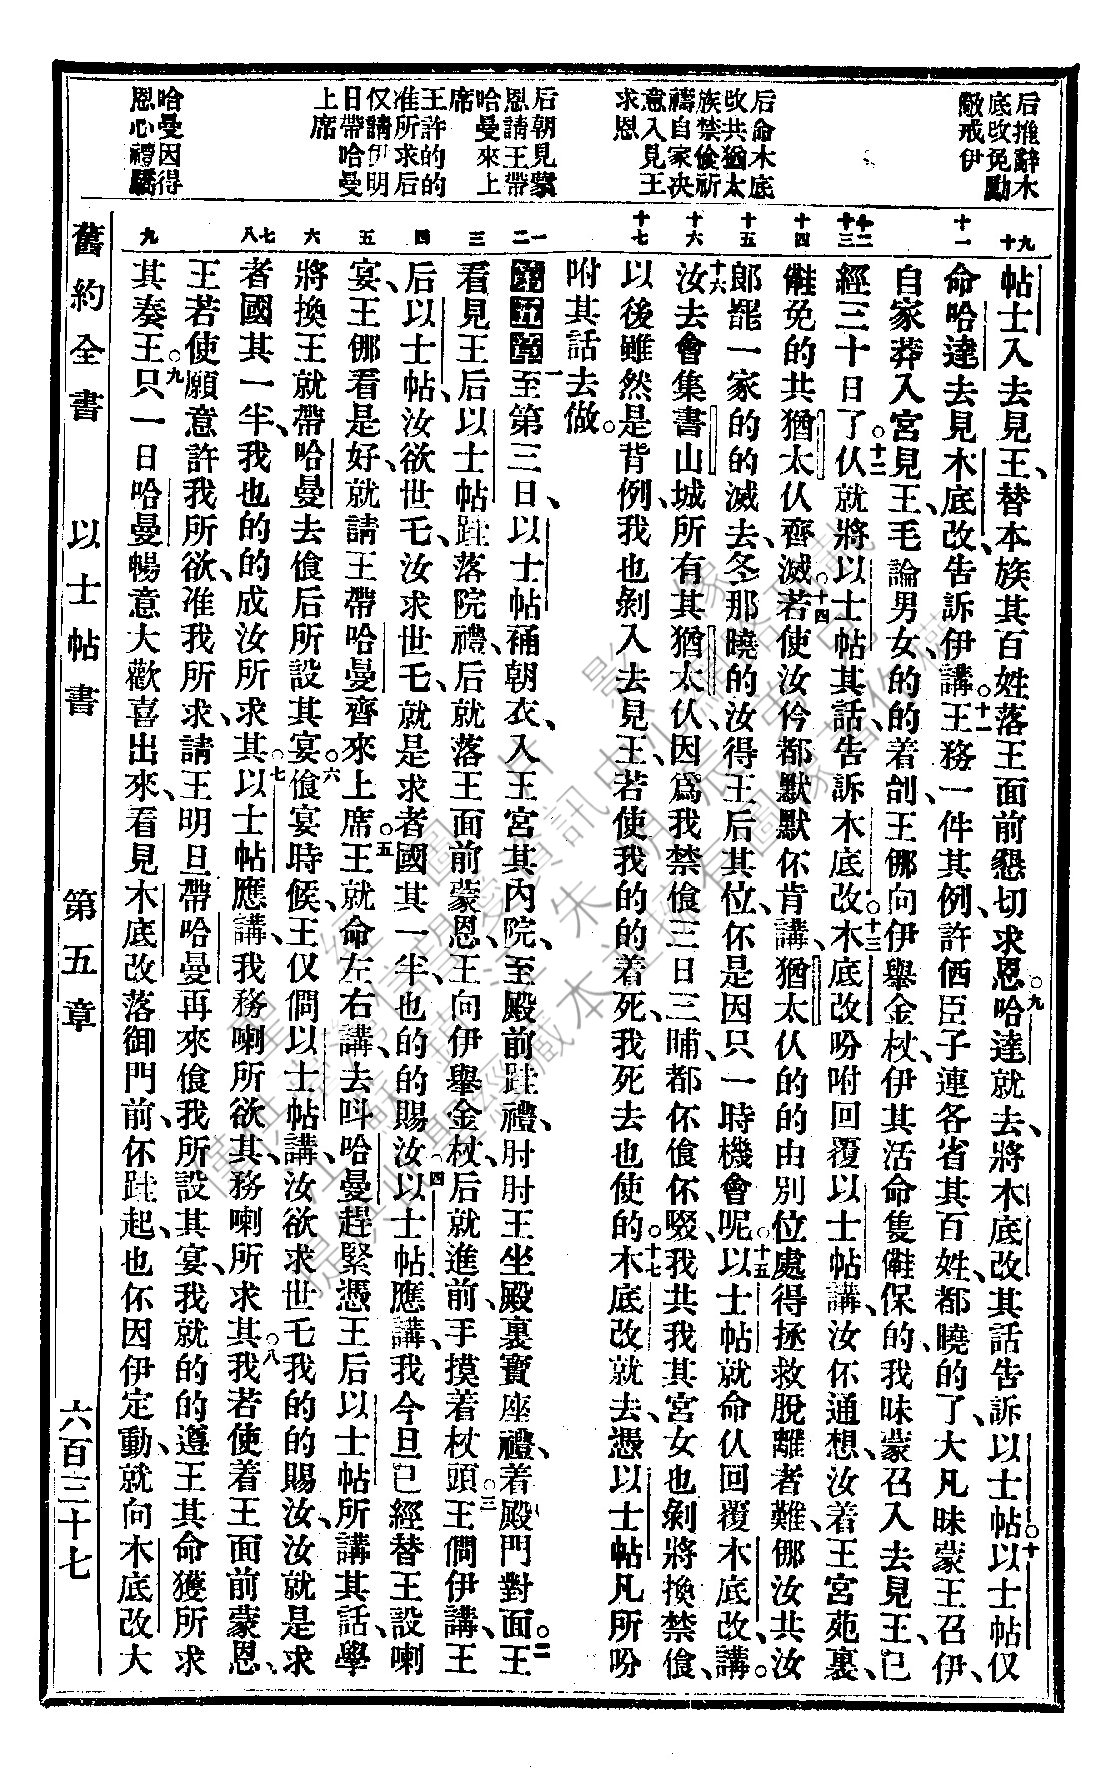 后推辭木
底改免勵
敵戒伊
后命木底
改共猶太
族禁偷祈
禱自家決
意入見王
求恩
后朝見蒙
恩請王帶
哈曼來上
席
王許的的
准所求后
仅請伊明
日帶哈曼
上席
哈曼因得
恩心禮驕
九
十
十一
十二
十三
十四
十五
十六
十七
一
二
三
四
五
六
七
八
九
帖士入去見王、替本族其百姓落王面前懇切求恩。九哈達就去、將木底改其話告訴以士帖。十以士帖仅
命哈達去見木底改、告訴伊講、十一王務一件其例、許俩臣子連各省其百姓、都曉的了、大凡昧蒙王召伊、
自家莽入宮見王、毛論男女、的的着刣、王㑚向伊舉金杖、伊其活命隻𠋡保的、我昧蒙召入去見王、已
經三十日了。十二仈就將以士帖其話告訴木底改。十三木底改吩咐回覆以士帖講、汝伓通想、汝着王宮苑裏、
𠋡免的共猶太仈齊滅。十四若使汝伶都默默伓肯講、猶太仈的的由別位處得拯救脫離者難、㑚汝共汝
郎罷一家的的滅去、冬那曉的汝得王后其位、伓是因只一時機會呢。十五以士帖就命仈回覆木底改講。
十六汝去會集書山城所有其猶太仈、因爲我禁偷三日三晡、都伓偷伓啜、我共我其宮女也剝將換禁偷、
以後雖然是背例、我也剝入去見王、若使我的的着死、我死去也使的。十七木底改就去、憑以士帖凡所吩
咐其話去做。
第五章 一至第三日、以士帖補朝衣、入王宮其內院、至殿前跬禮、肘肘王坐殿裏寶座禮、着殿門對面。二王
看見王后以士帖跬落院禮、后就落王面前蒙恩、王向伊舉金杖、后就進前、手摸着杖頭。三王僴伊講、王
后以士帖、汝欲世乇、汝求世乇、就是求者國其一半、也的的賜汝。四以士帖應講、我今旦已經替王設喇
宴、王㑚看是好、就請王帶哈曼齊來上席。五王就命左右講、去呌哈曼趕緊憑王后以士帖所講其話、學
將換王就帶哈曼去偷后所設其宴。六偷宴時候、王仅僴以士帖講、汝欲求世乇、我的的賜汝、汝就是求
者國其一半、我也的的成汝所求其。七以士帖應講、我務喇所欲其、務喇所求其。八我若使着王面前蒙恩、
王若使願意許我所欲、准我所求、請王明旦帶哈曼再來偷我所設其宴、我就的的遵王其命獲所求
其奏王。九只一日哈曼暢意大歡喜出來、看見木底改落御門前、伓跬起、也伓因伊定動、就向木底改大
舊約全書 以士帖書 第五章 六百三十七